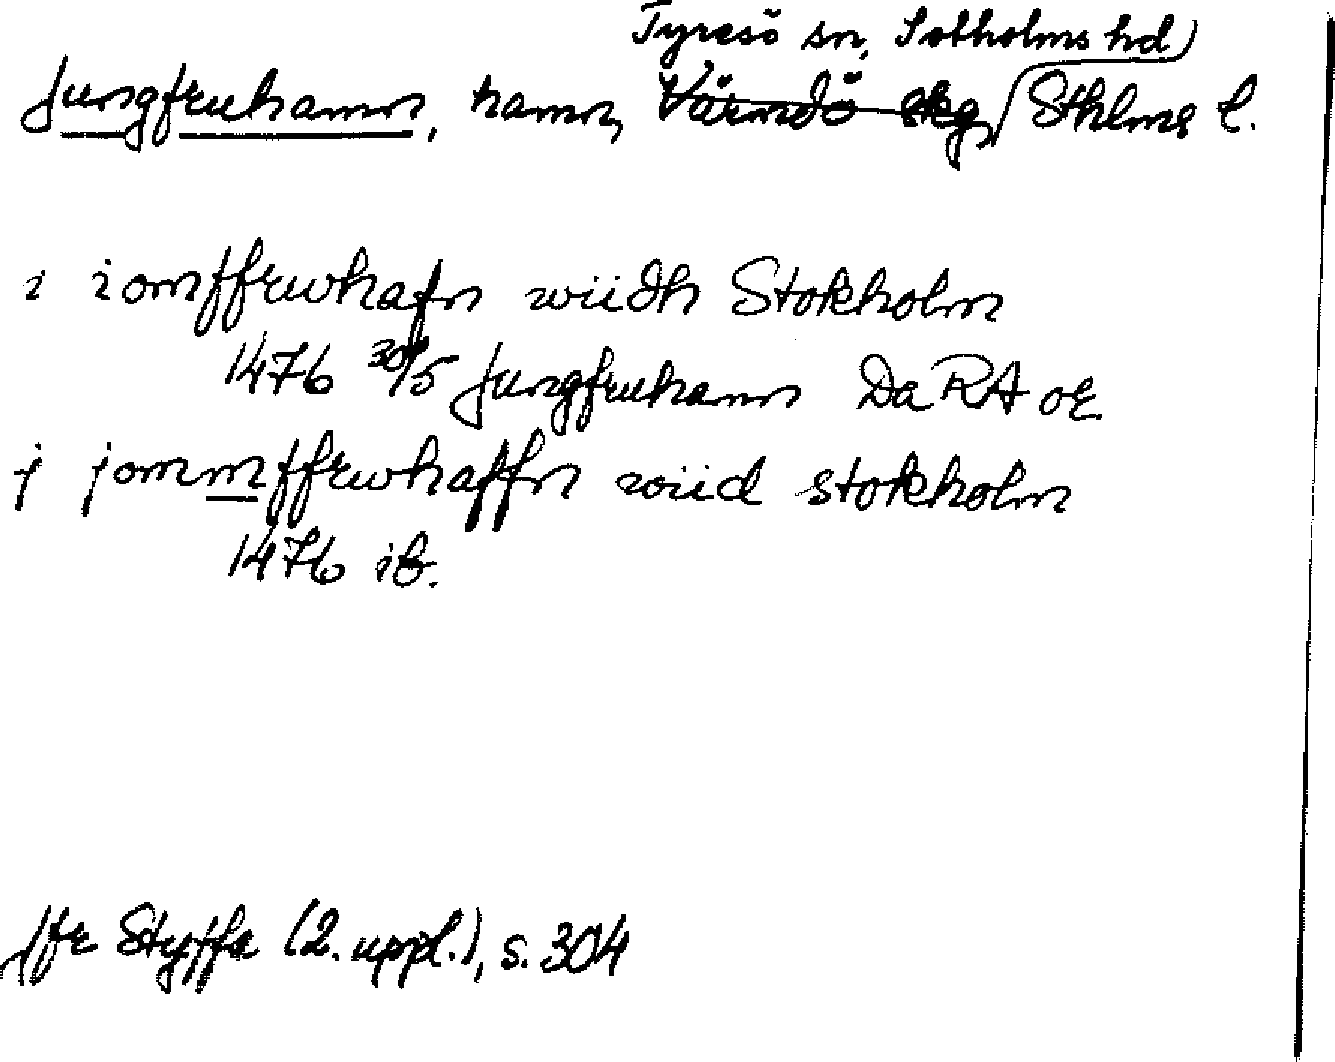 Tyresö sn, Sotholms hd
Jungfruhamn, hamn, Värmdö skg, Sthlms l.
i iomffrwhafn wiidh Stokholm
1476 30/5 Jungfruhamn Da RA or.
j jommffrwhaffn wiid stokholm
1476 ib.
Jfr Styffe (2. uppl.), s. 304